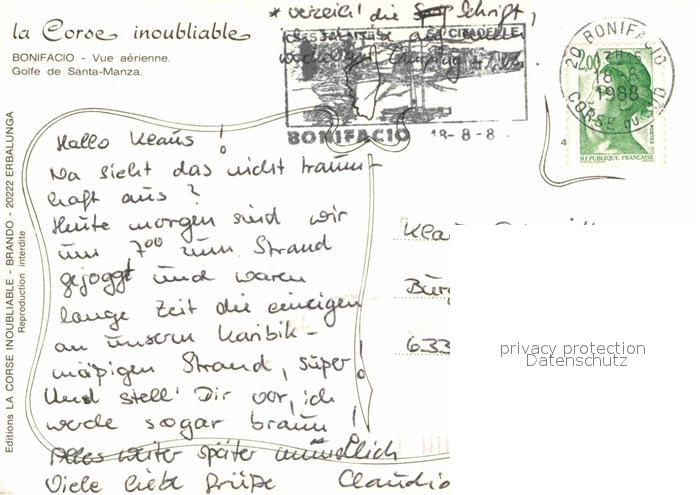 la Corse inoubliable
BONIFACIO - Vue aérienne.
Golfe de Santa-Manza.
* verzeih' die Schrift,
CITADELLE
BONIFACIO 18-8-8
20 BONIFACIO
18-8
1988
CORSE DU
2,00
POSTES
REPUBLIQUE FRANÇAISE
4
Editions LA CORSE INOUBLIABLE - BRANDO - 20222 ERBALUNGA
Reproduction interdite
Hallo Klaus !
Na sieht das nicht traum-
haft aus ?
Heute morgen sind wir
um 7⁰⁰ zum Strand
gejoggt und waren
lange Zeit die einzigen
an unserm Karibik-
mäßigen Strand, super!
Und stell' Dir vor, ich
werde sogar braun !
Alles weiter später mündlich
Viele liebe Grüße Claudio
Klau
Bürg
633
privacy protection
Datenschutz